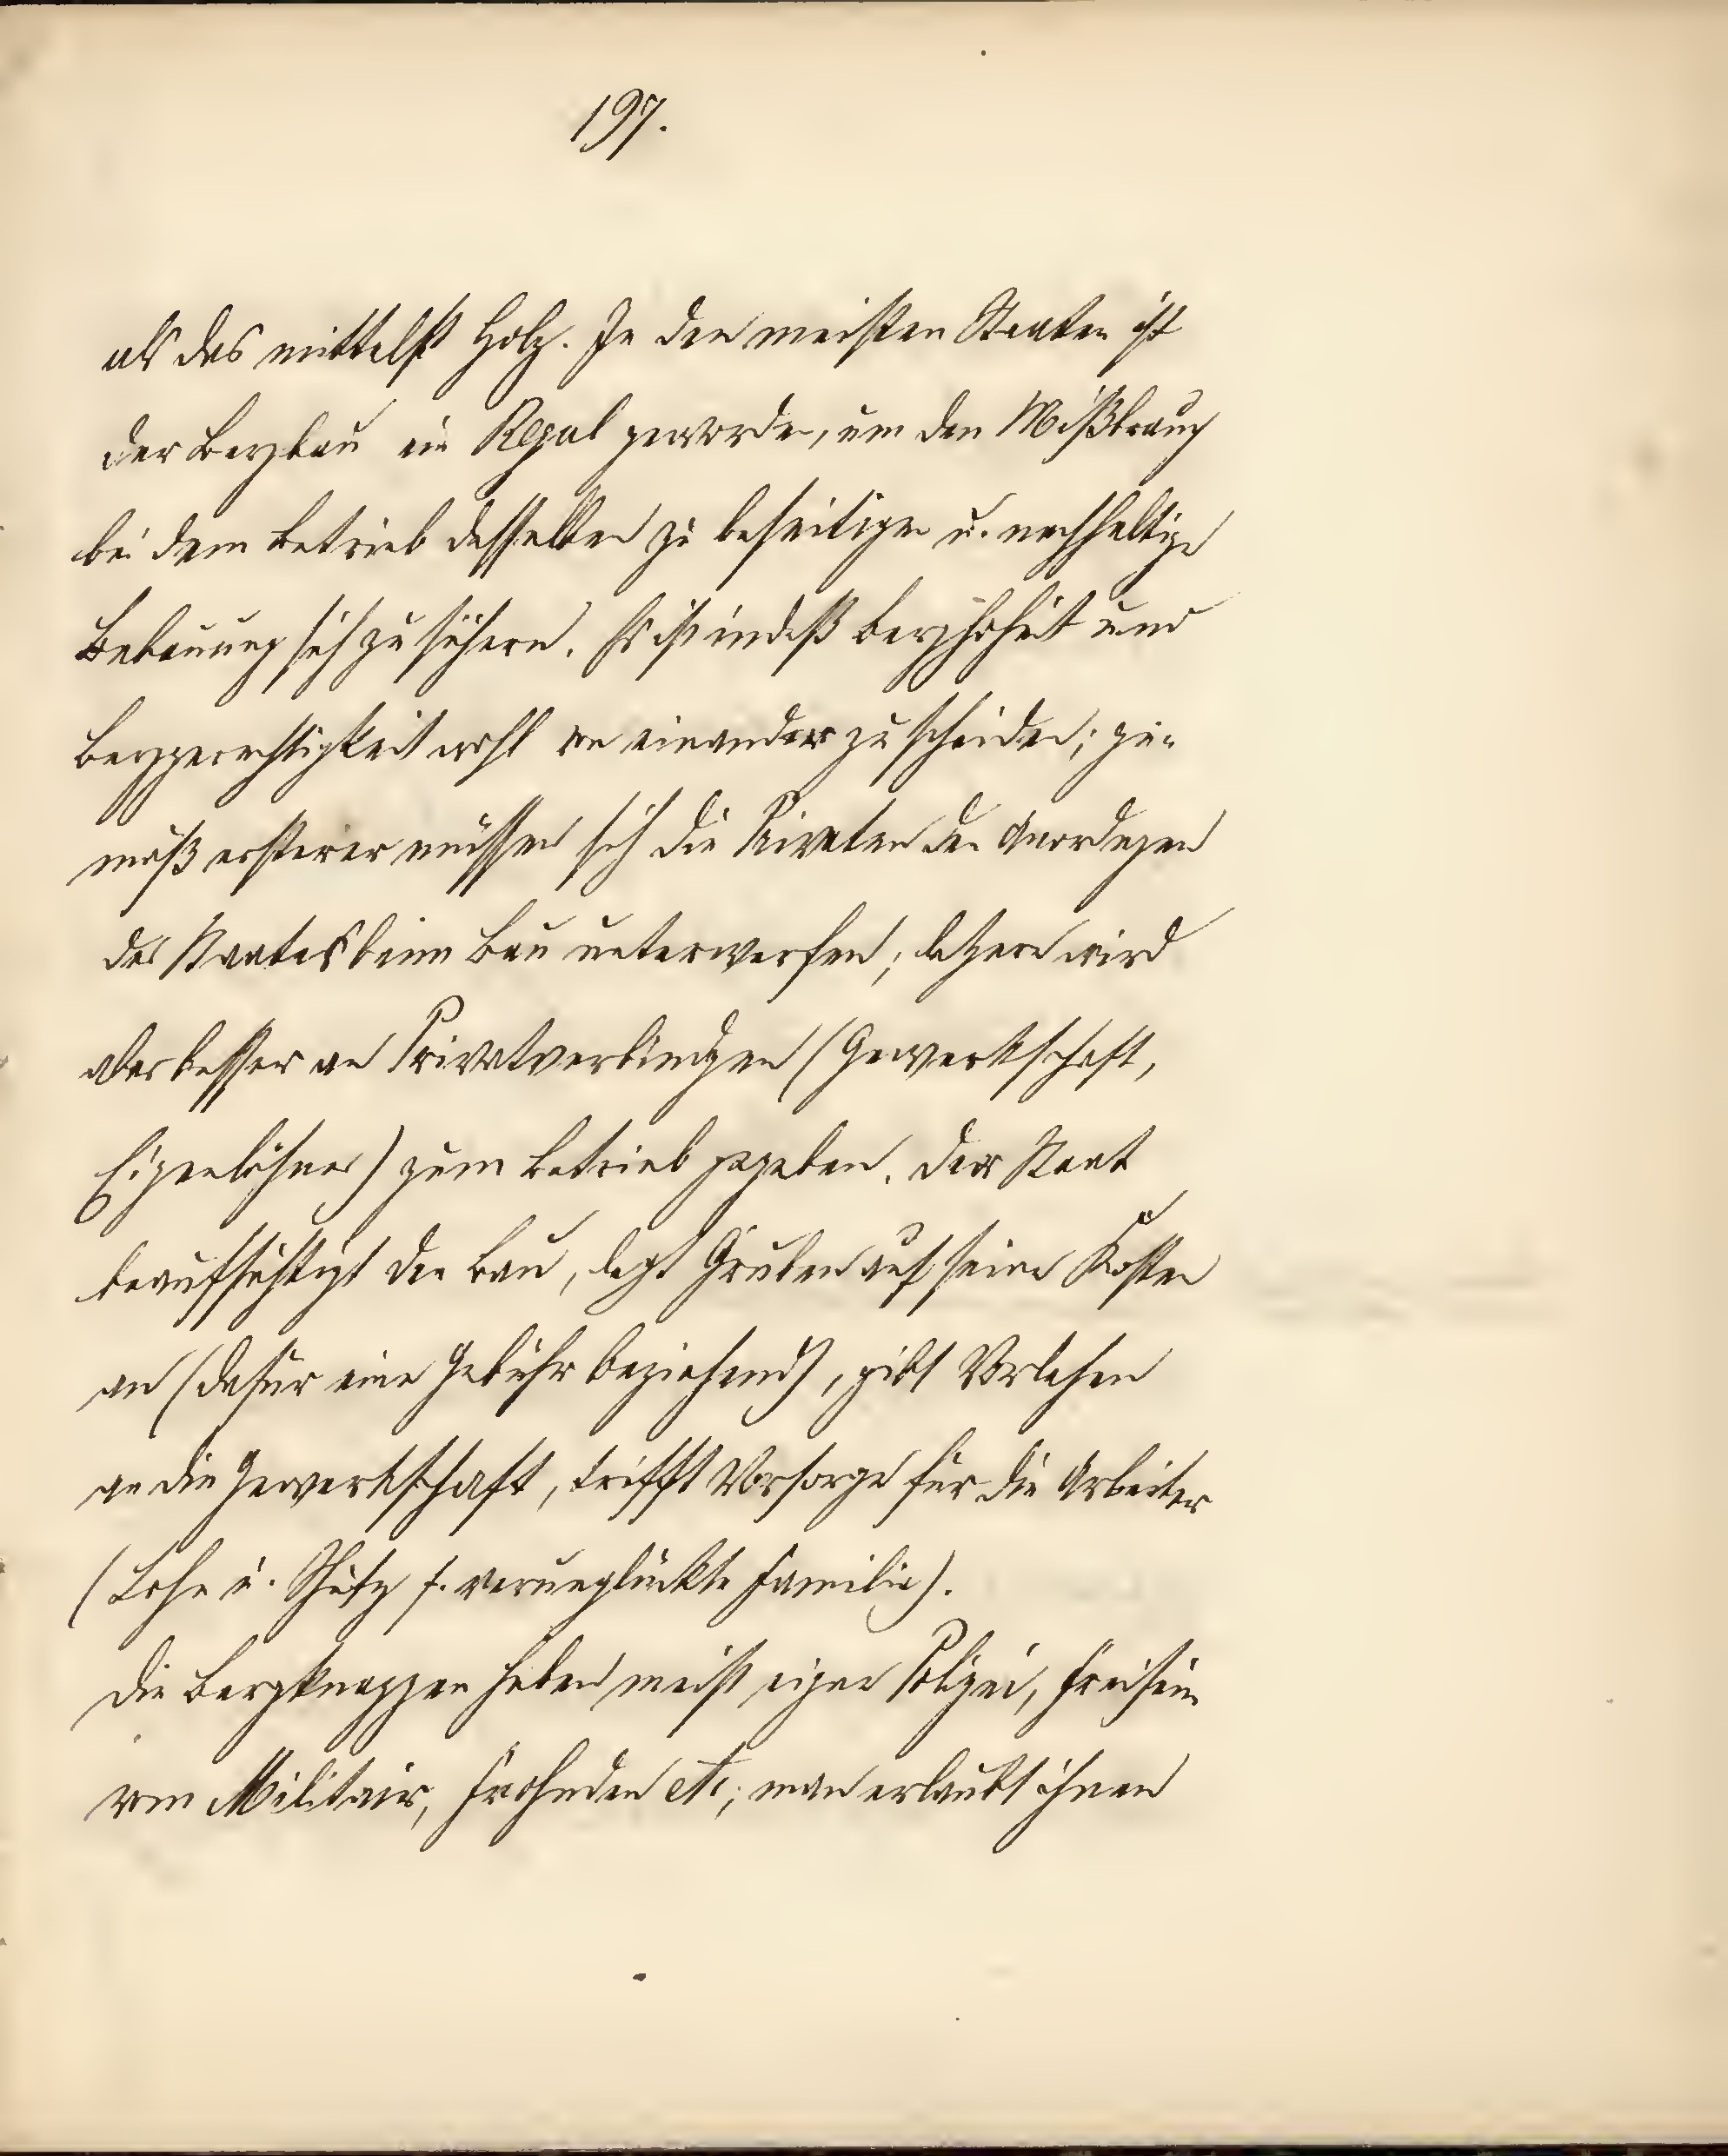 197.
als das mittelst Holz. In den meisten Staaten ist
der Bergbau ein Regal geworden, um den Mißbrauch
bei dem Betrieb desselben zu beseitigen u. nachhaltige
Bebauung sich zu sichern. Es ist indeß Berghoheit und
Berggerechtigkeit wohl von einander zu scheiden; ge-
mäß ersterer müssen sich die Privaten den Anordngen
des Staates beim Bau unterwerfen; letzere wird
aber besser an Privatverbindgen (Gewerkschaft,
Eigenlöhner) zum Betrieb gegeben. Der Staat
beaufsichtigt den Bau, legt Gruben auf seine Kosten
an (dafür eine Gebühr beziehend), gibt Vorlehen
an die Gewerkschaft, trifft Vorsorge für die Arbeiter
(Lohn u. Schutz f. verunglückte Familie).
Die Bergknappen haben meist eigene Polizei, Freisein
vom Militair, Frohnden etc; man erlaubt ihnen